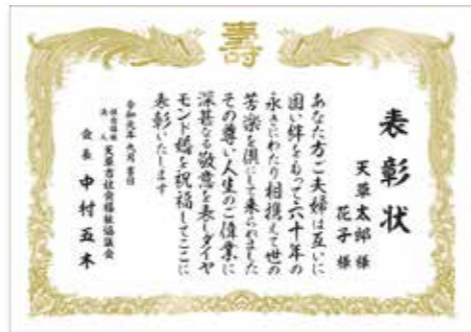 壽
表彰状
天草太郎様
花子様
あなた方ご夫婦は互いに
固い絆をもって六十年の
永きにわたり相携えて世の
苦楽を倶にして来られました
その尊い人生のご偉業に
深甚なる敬意を表しダイヤ
モンド婚を祝福してここに
表彰いたします
令和元年九月吉日
社会福祉
法人
天草市社会福祉協議会
会長 中村五木